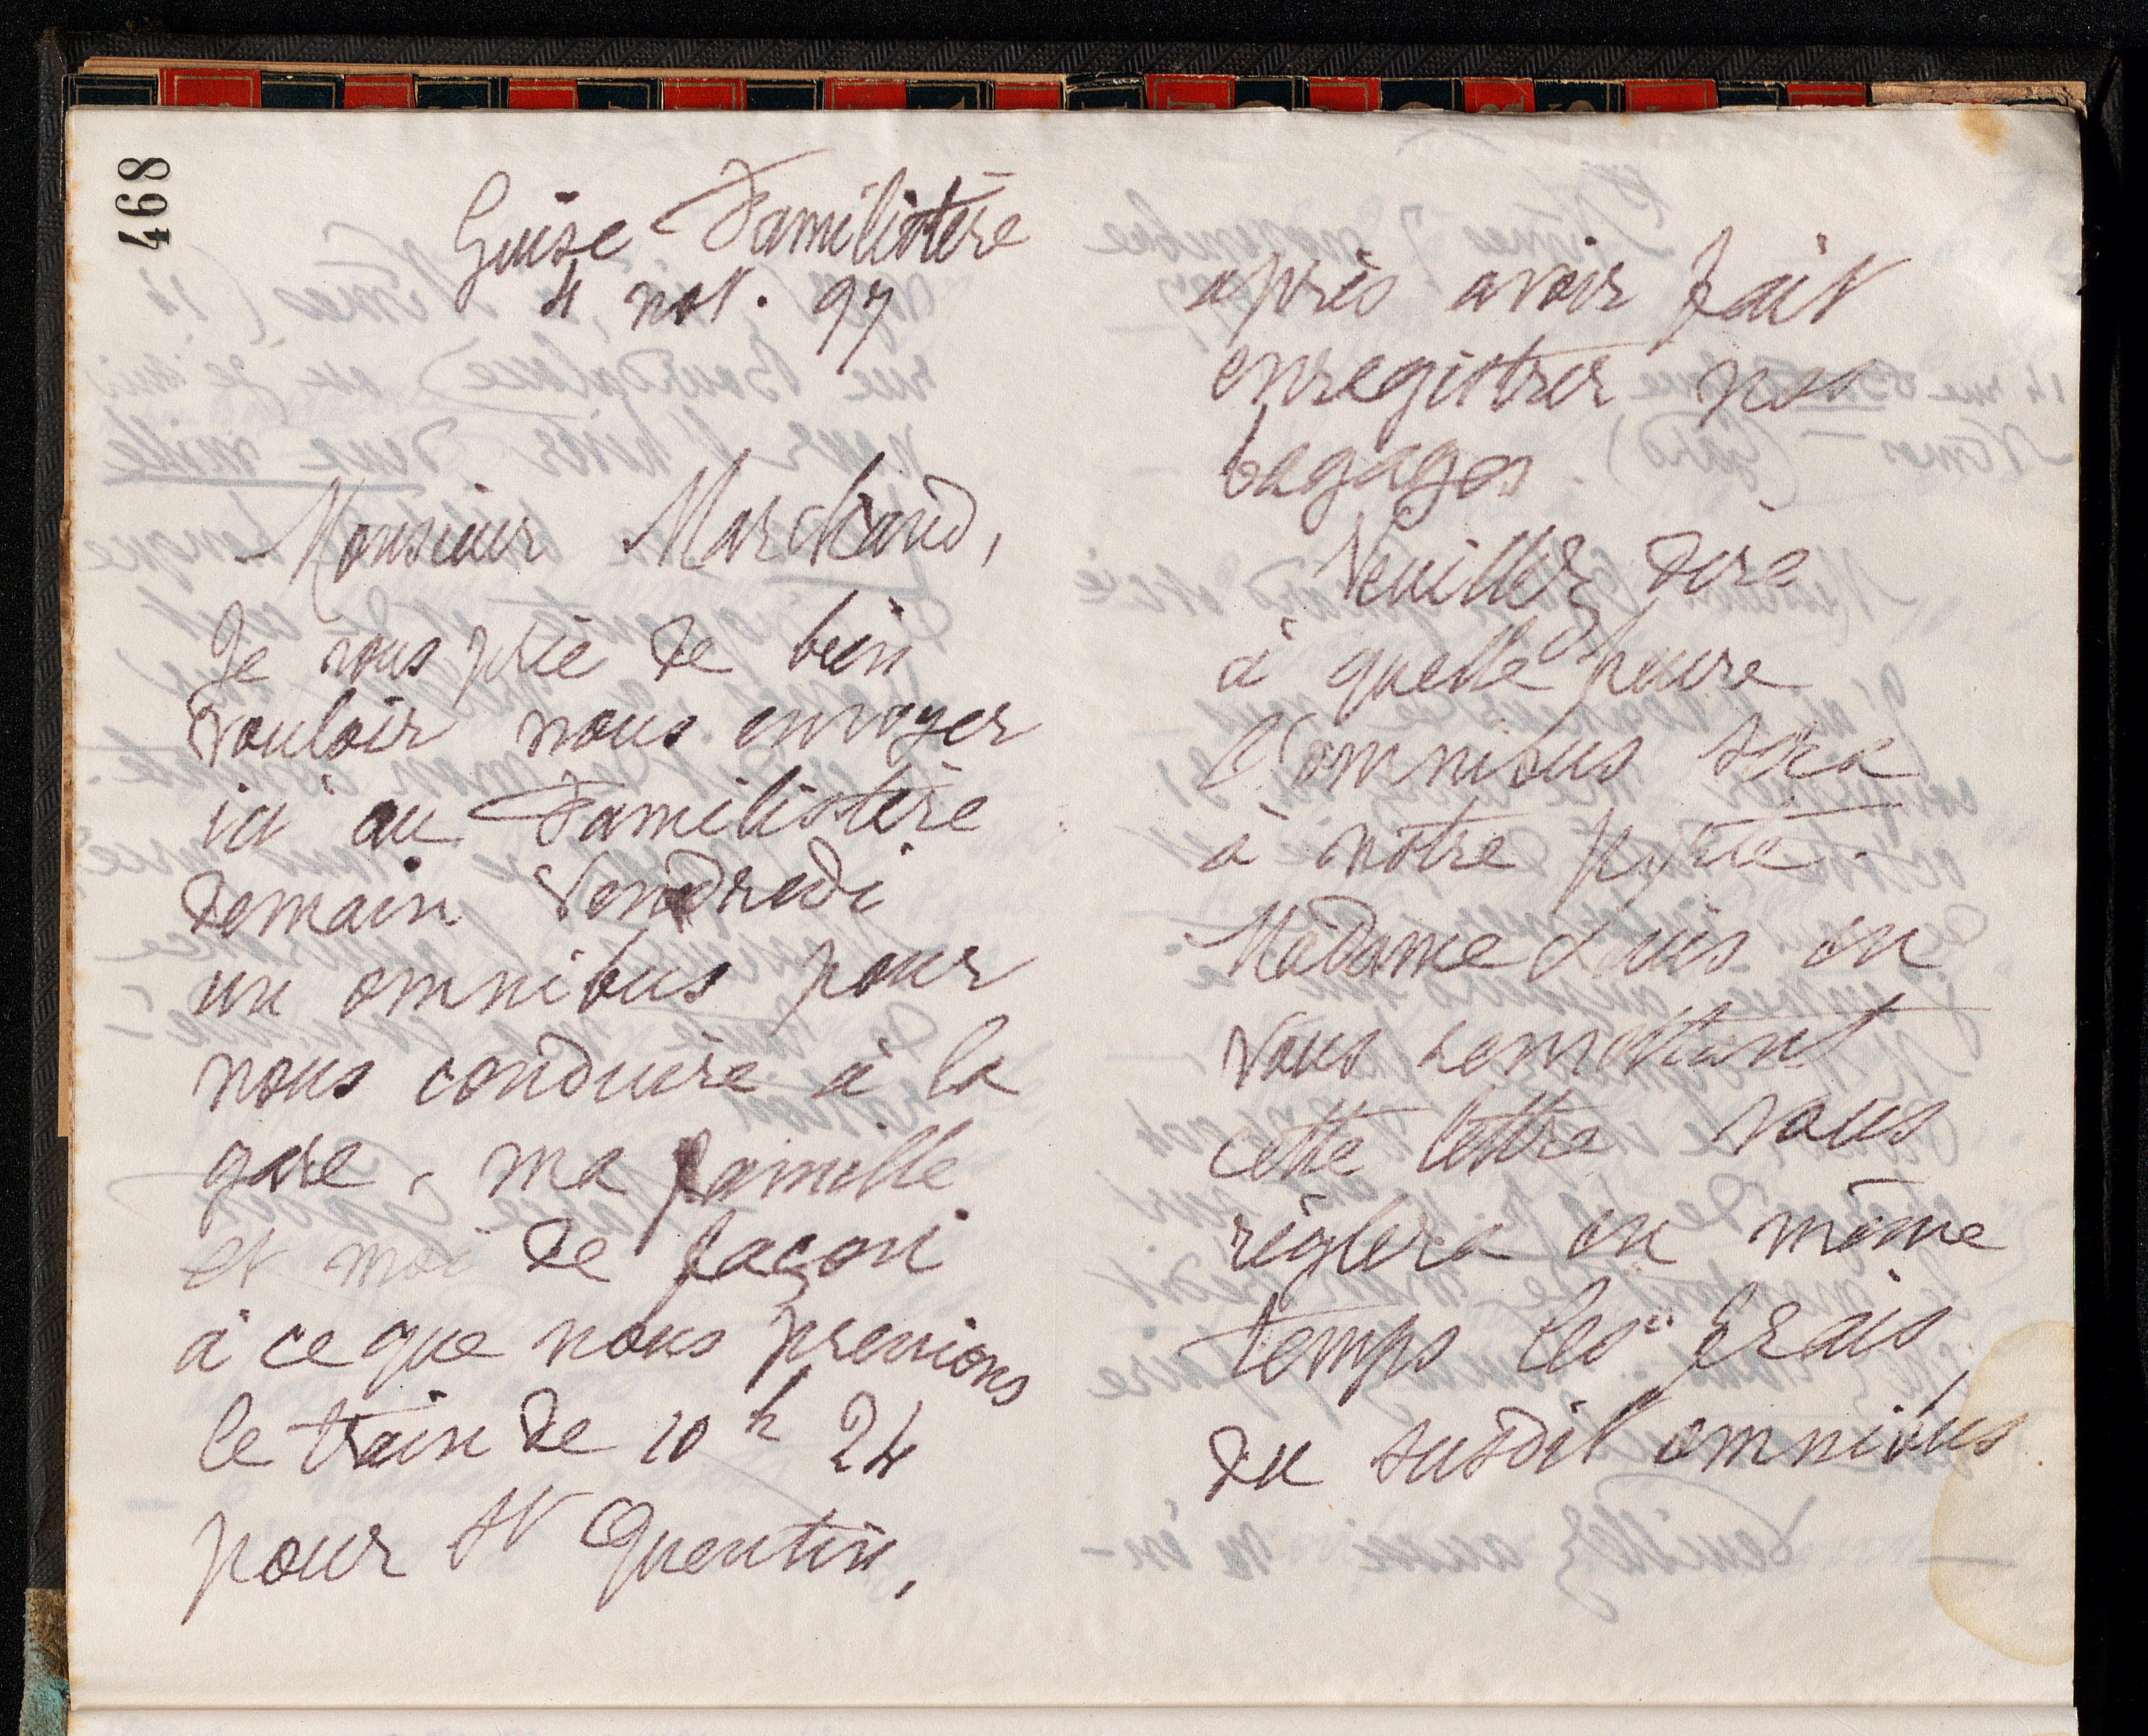 468
Guise Familistère
4 nov. 97
Monsieur Marchand,
Je vous prie de bien
vouloir nous envoyer
ici au Familistère
demain Vendredi
un omnibus pour
nous conduire à la
gare, ma famille
et moi de façon
à ce que nous prenions
le train de 10 h 24
pour St Quentin,
après avoir fait
enregistrer nos
bagages.
Veuillez dire
à quelle heure
l'omnibus sera
à notre porte.
Madame Louis en
vous remettant
cette lettre vous
règlera en même
temps les frais
du susdit omnibus